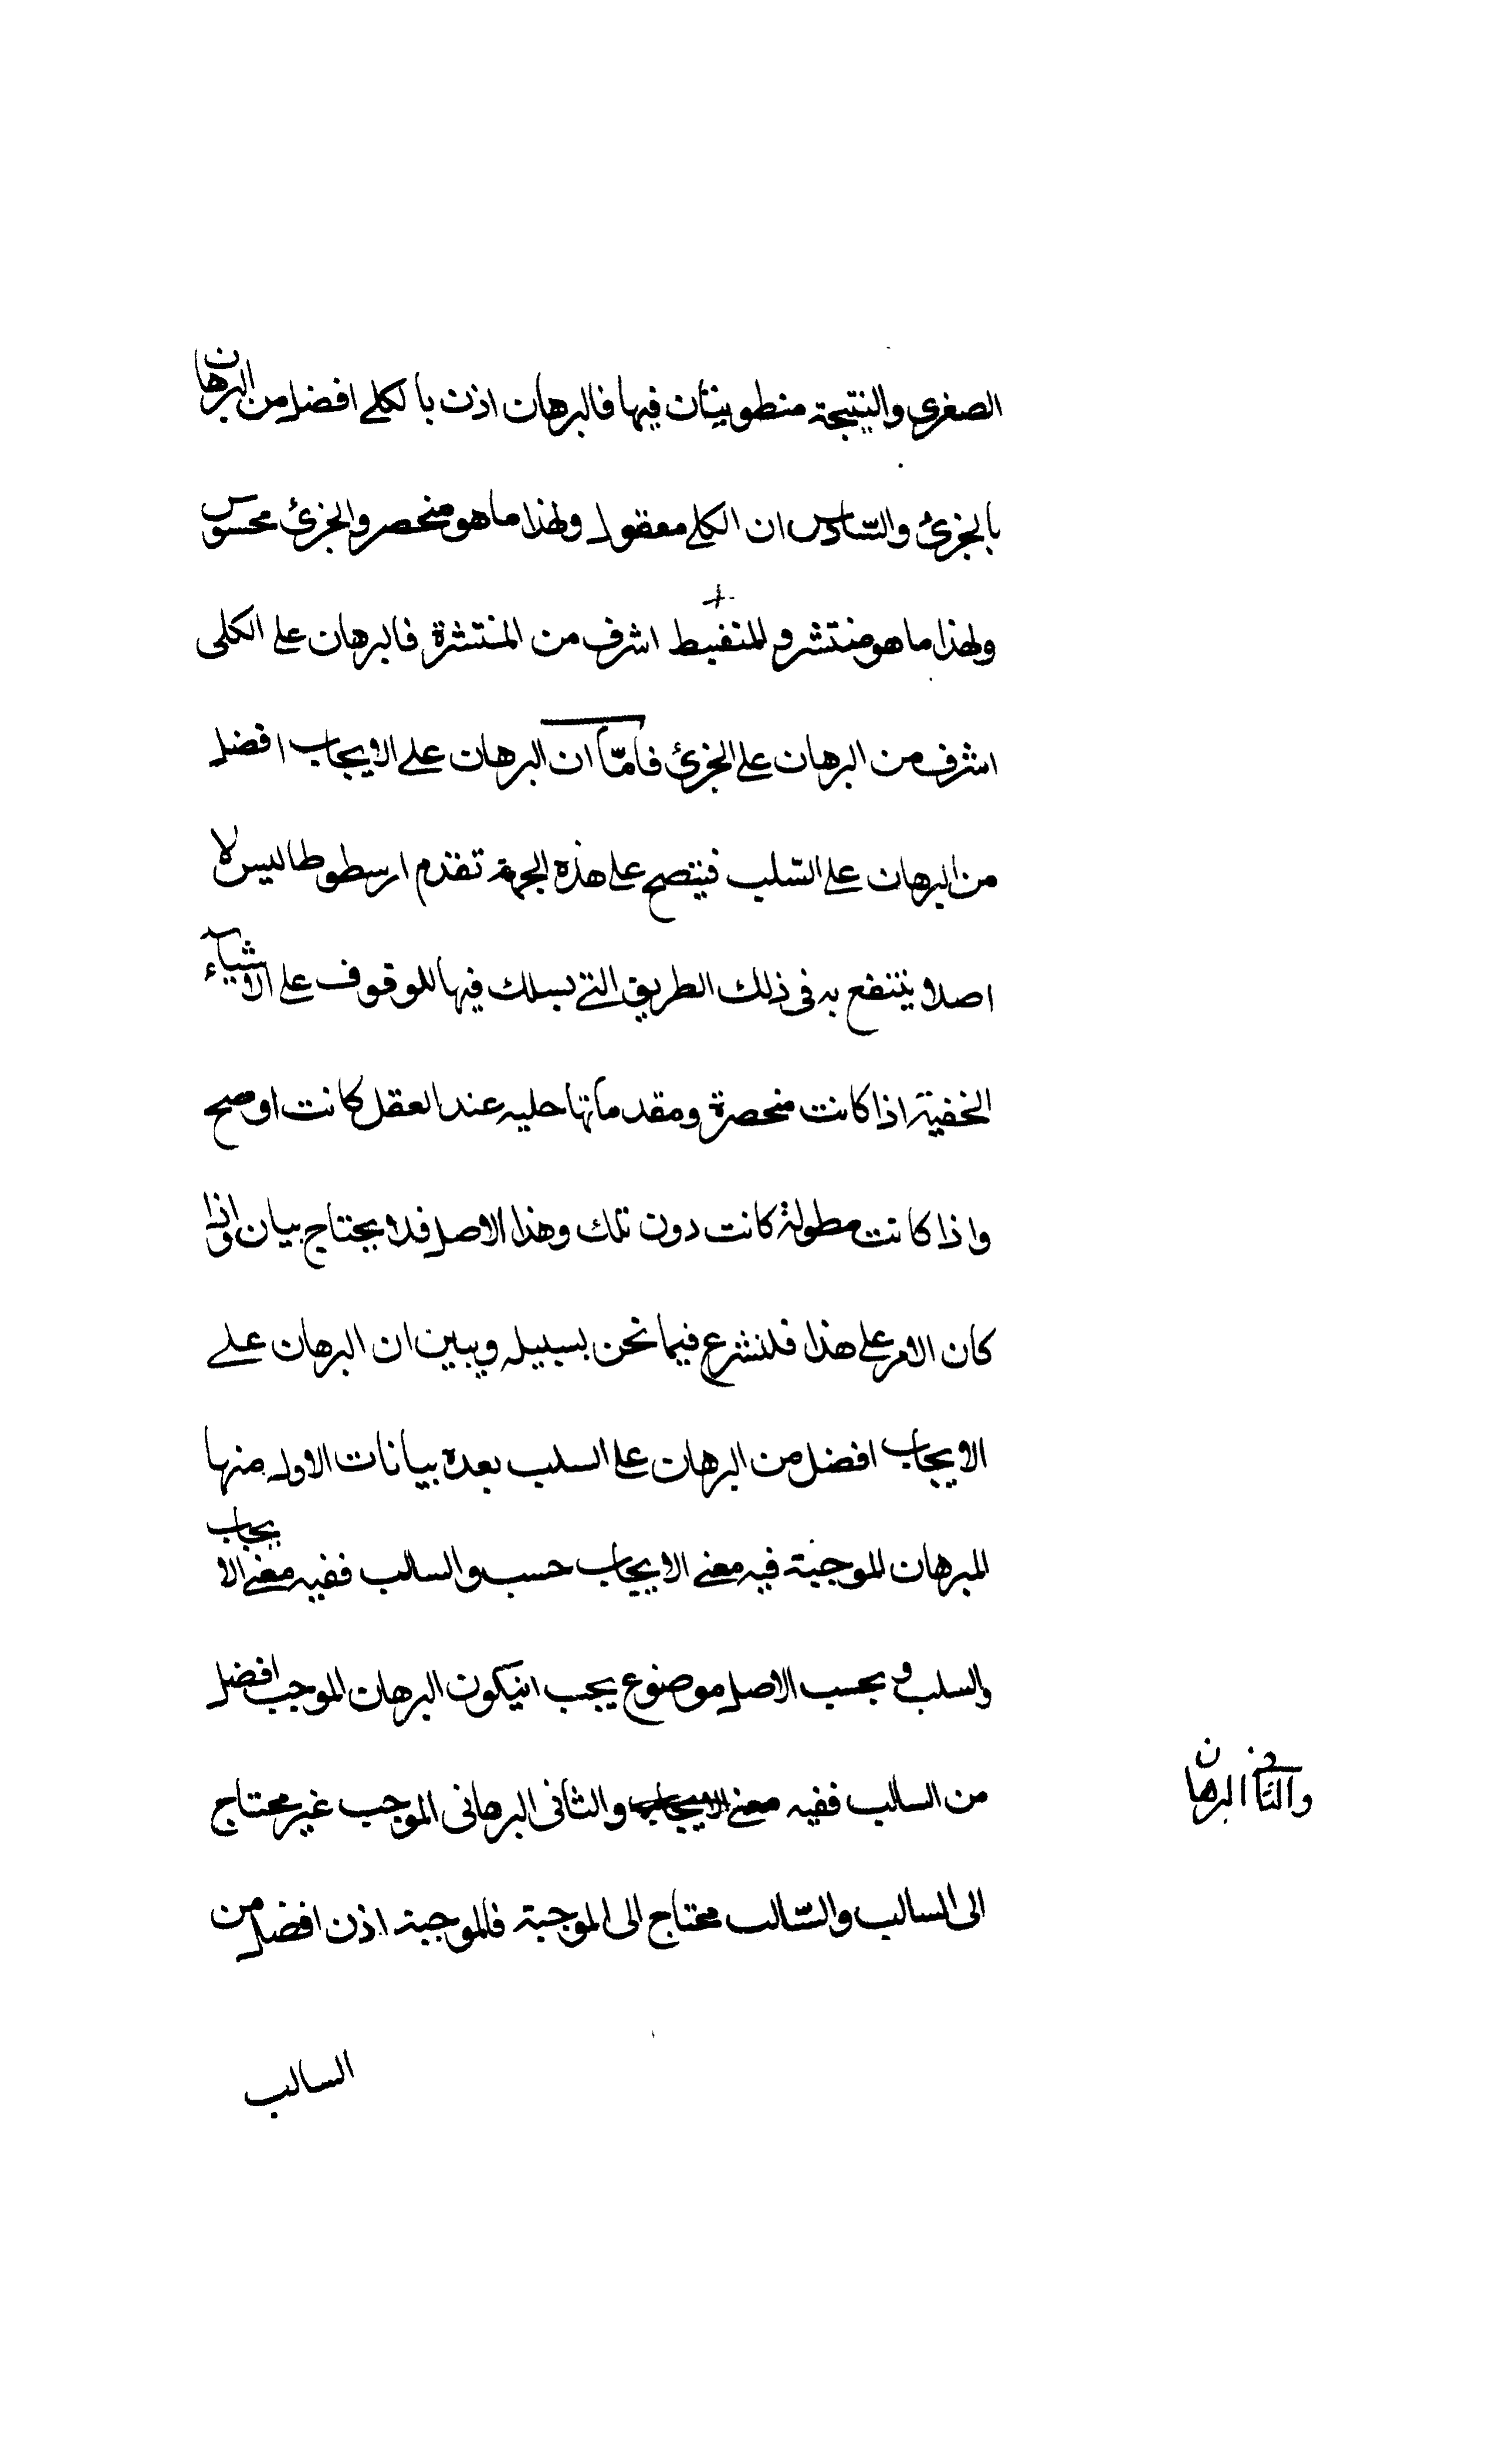 الصغرى والنتيجة منطويتان فيها فالبرهان اذن بالكلي افضل من البرهان
بالجزئ والسّادس ان الكلي معقول ولهذا ما هو منحصر والجزئ محسوس
ولهذا ما هو منتشر و المنضبط اشرف من المنتشرة فالبرهان على الكلى
اشرف من البرهان على الجزئ فامّا ان البرهان على الايجاب افضل
من البرهان على السّلب فيتضح على هذه الجهة تقدم ارسطوطاليس لا
اصلا ينتفع به فى ذلك الطريق التي يسلك فيها للوقوف على الاشياء
الخفية اذا كانت منحصرة ومقدماتها جليه عند العقل كانت اوضح
واذا كانت مطولة كانت دون تلك وهذا الاصل فلا يحتاج بيان واذا
كان الامر على هذا فلنشرع فيما نحن بسبيله ويبين ان البرهان على
الايجاب افضل من البرهان على السلب بعدة بيانات الاول منها
البرهان الموجبة فيه معنى الايجاب حسب والسالب ففيه معنى الايجاب
والسلب و بحسب الاصل موضوع يجب انيكون البرهان الموجب افضل
من السالب ففيه معنى الايجاب والثانى البرهانى الموجب غير محتاج
الى السالب والسّالب محتاج الى الموجبة فالموجبة اذن افضل من
السالب
والثانى البرهان